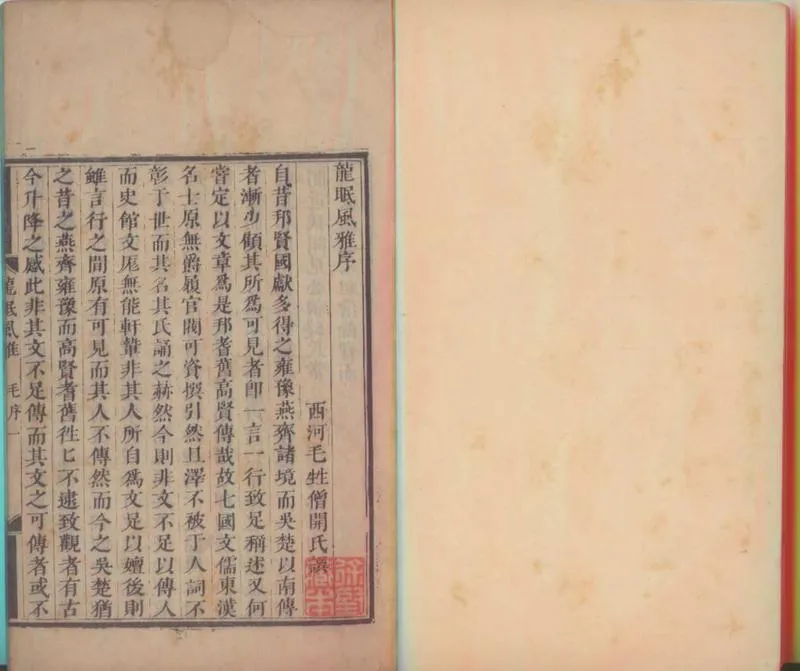 龍眠風雅序
西河毛甡僧開氏譔
自昔邦賢國獻多得之雍豫燕齊諸境而吳楚以南傳
者漸少顧其所為可見者卽一言一行致足稱述又何
嘗定以文章爲是邦耆舊高賢傳哉故七國文儒東漢
名士原無爵履官閥可資撰引然且澤不被于人詞不
彰于世而其名其氏誦之赫然今則非文不足以傳人
而史館文厖無能軒輊非其人所自爲文足以嬗後則
雖言行之間原有可見而其人不傳然而今之吳楚猶
之昔之燕齊雍豫而高賢耆舊徃匕不逮致觀者有古
今升降之感此非其文不足傳而其文之可傳者或不
龍眠風雅
毛序
一